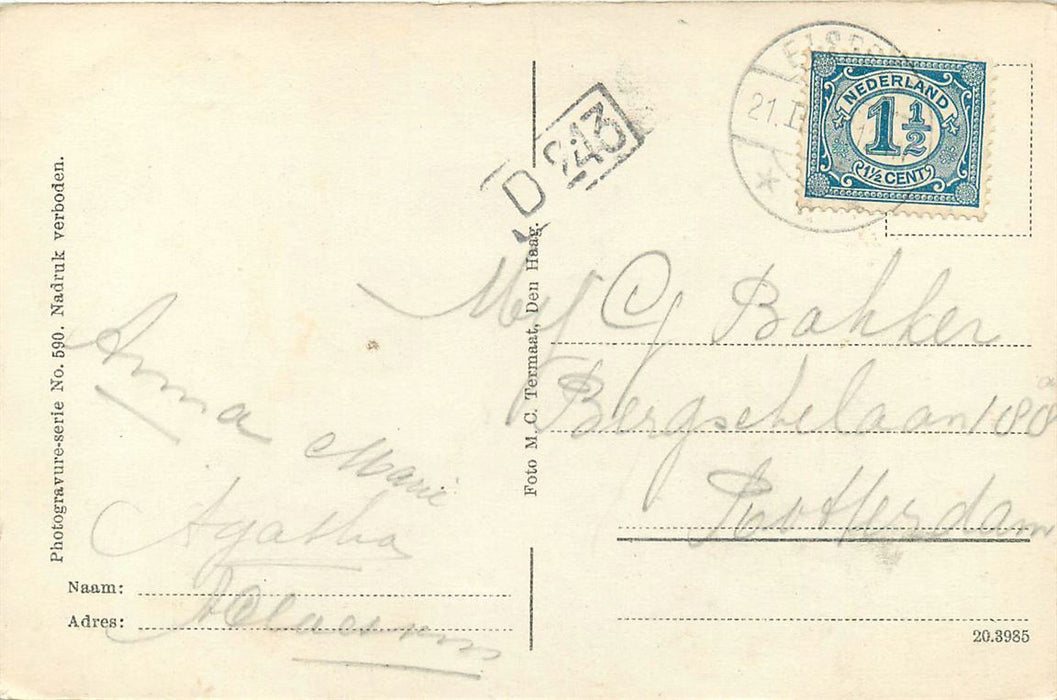 Photogravure-serie No. 590. Nadruk verboden.
Anna
Marie
Agatha
Naam:
Adres:
Foto M. C. Termaat, Den Haag.
D 243
21.I
NEDERLAND
1 1/2
1/2 CENT
Mej C J Bakker
Bergschelaan 180 a
Rotterdam
20.3985